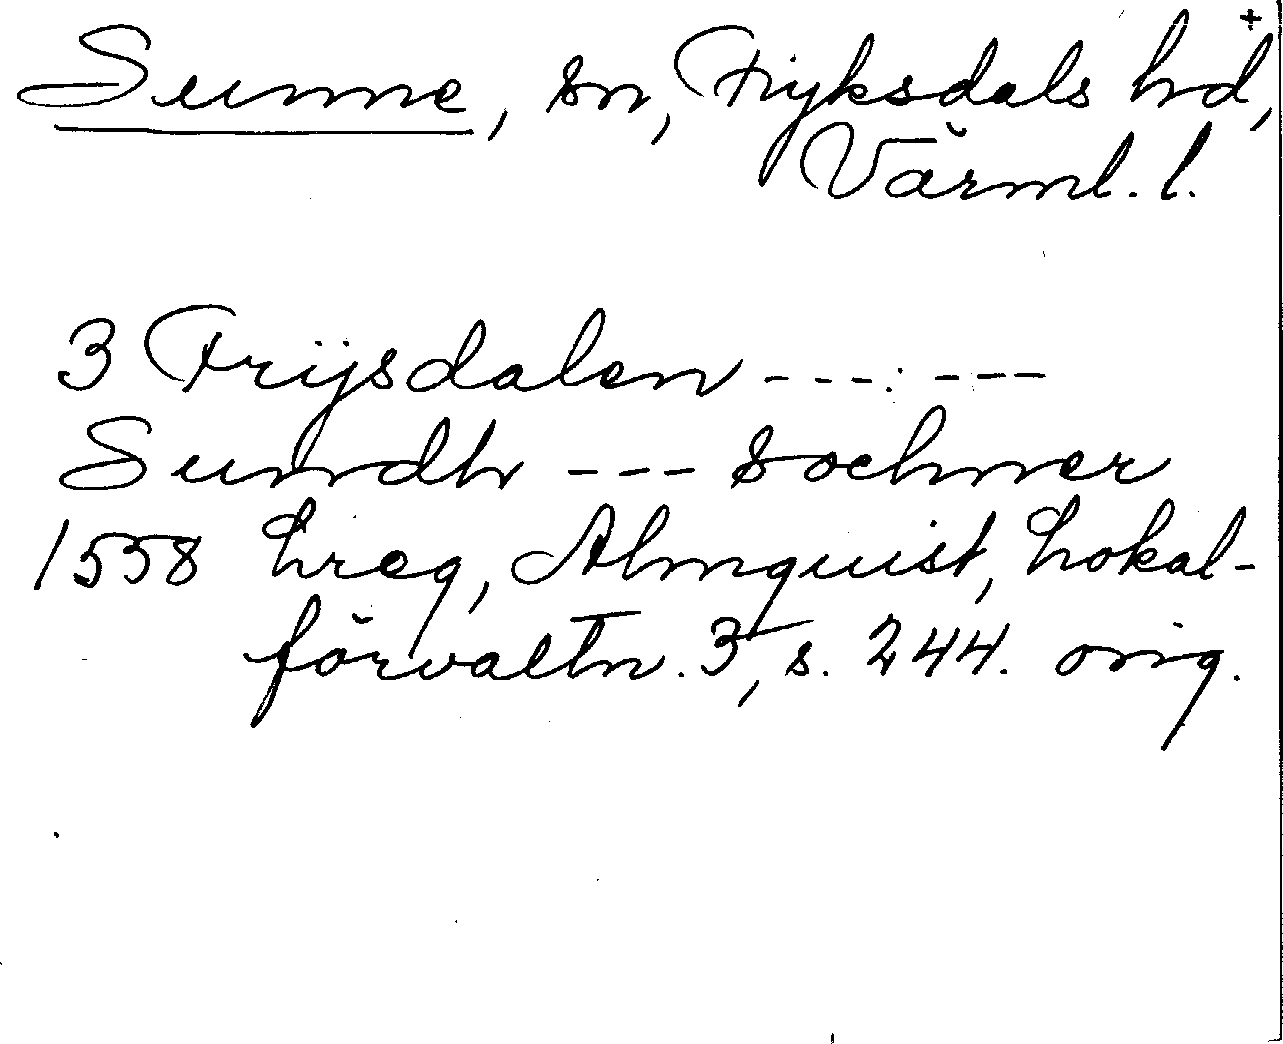 Sunne, sn, Fryksdals hd, +
Värml. l.
3 Frijsdalen ------
Sundh --- sochner
1558 Lreg, Almquist, Lokal-
förvaltn. 3, s. 244. orig.